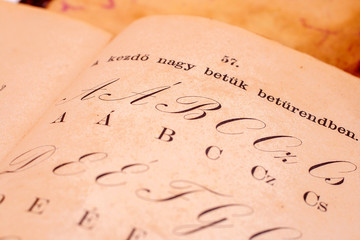 57.
A kezdő nagy betük betűrendben.
A Á B C Cz Cs
A Á B C Cz Cs
D E É F G
D E É